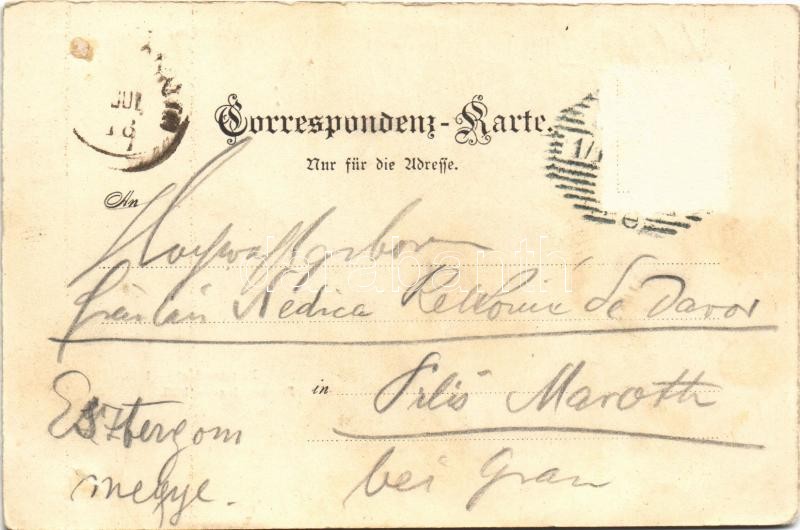 JUL
18
Correspondenz-Karte.
Nur für die Adresse.
An
Hochwohlgeborn
Fräulein Nedica Relković de Davor
in Pilis Maróth
bei Gran
Esztergom
megye.
darabanth